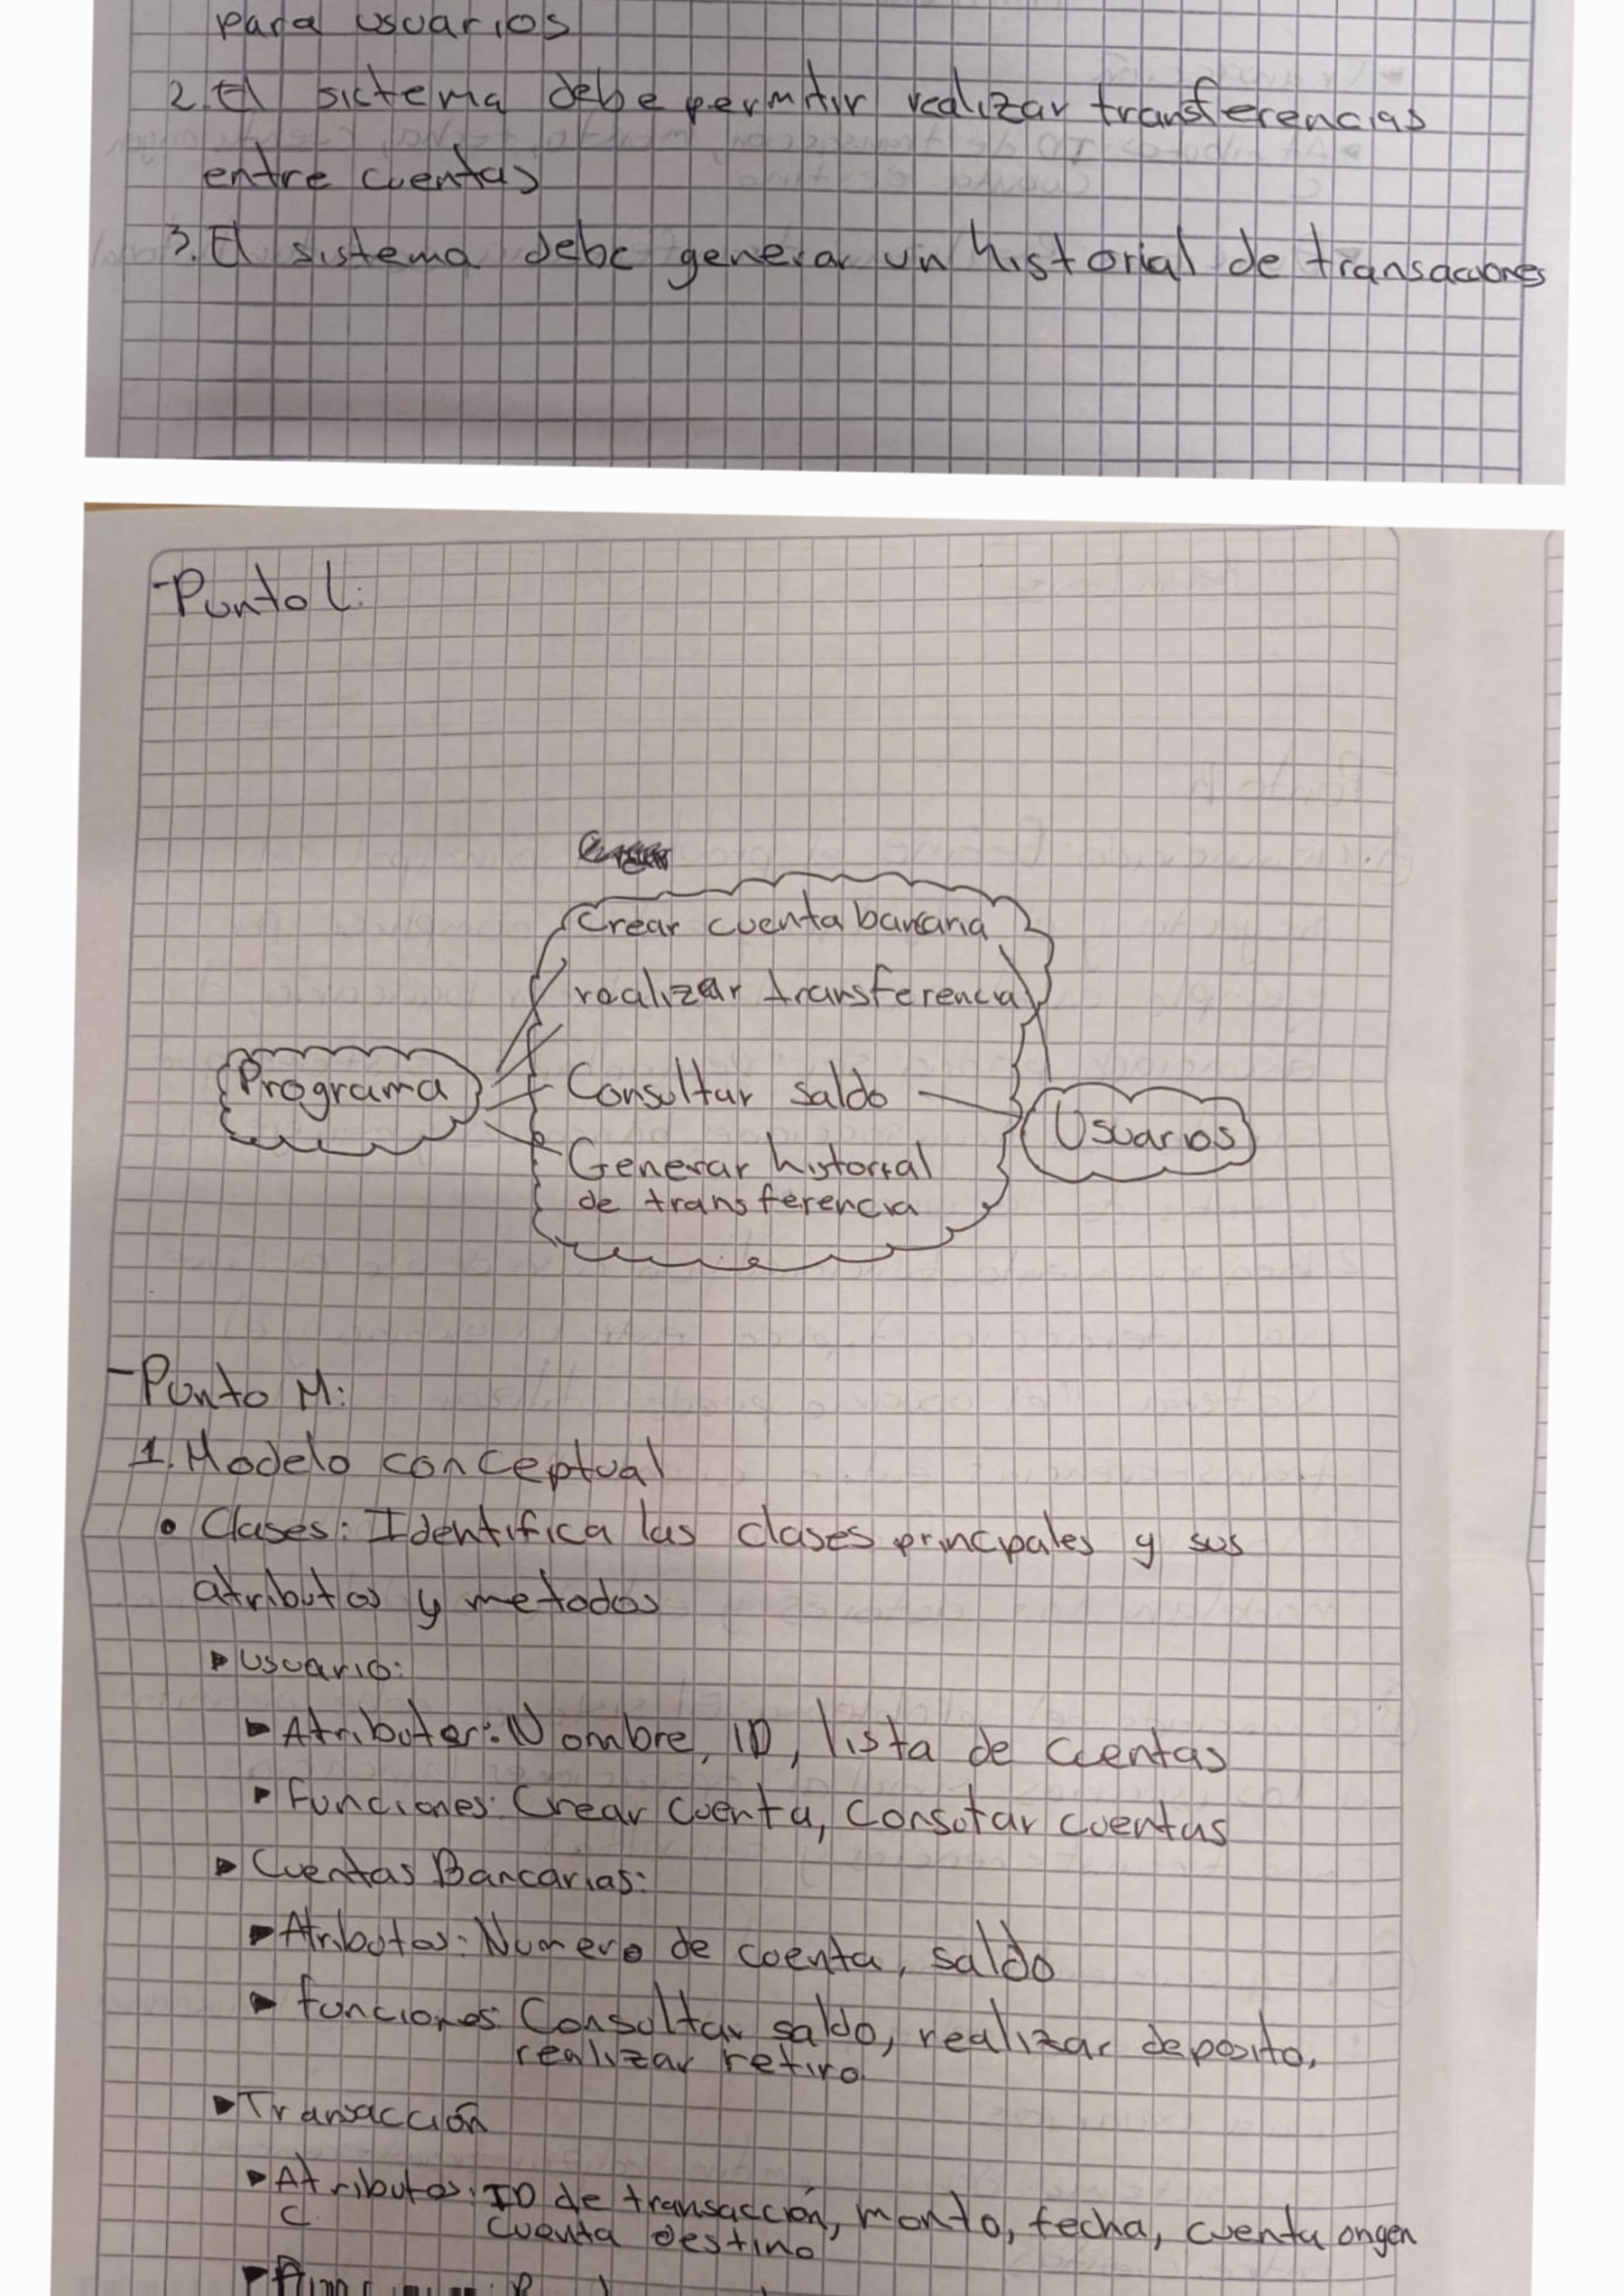 para usuarios
2. El sictema debe permitir realizar transferencias
entre cuentas
3. El sistema debe generar un historial de transacciones
-Punto l:
Crear cuenta bancaria
realizar transferencia
Programa
Consultar saldo
Usuarios
Generar historial
de transferencia
-Punto M:
1. Modelo conceptual
• Clases: Identifica las clases principales y sus
atributos y metodos
▸ Usuario:
▸ Atributos: Nombre, ID, lista de cuentas
▸ Funciones: Crear cuenta, Consutar cuentas
▸ Cuentas Bancarias:
▸ Atributos: Numero de cuenta, saldo
▸ funciones: Consultar saldo, realizar deposito,
realizar retiro
▸ Transacción
▸ Atributos: ID de transacción, monto, fecha, cuenta origen
C cuenta destino